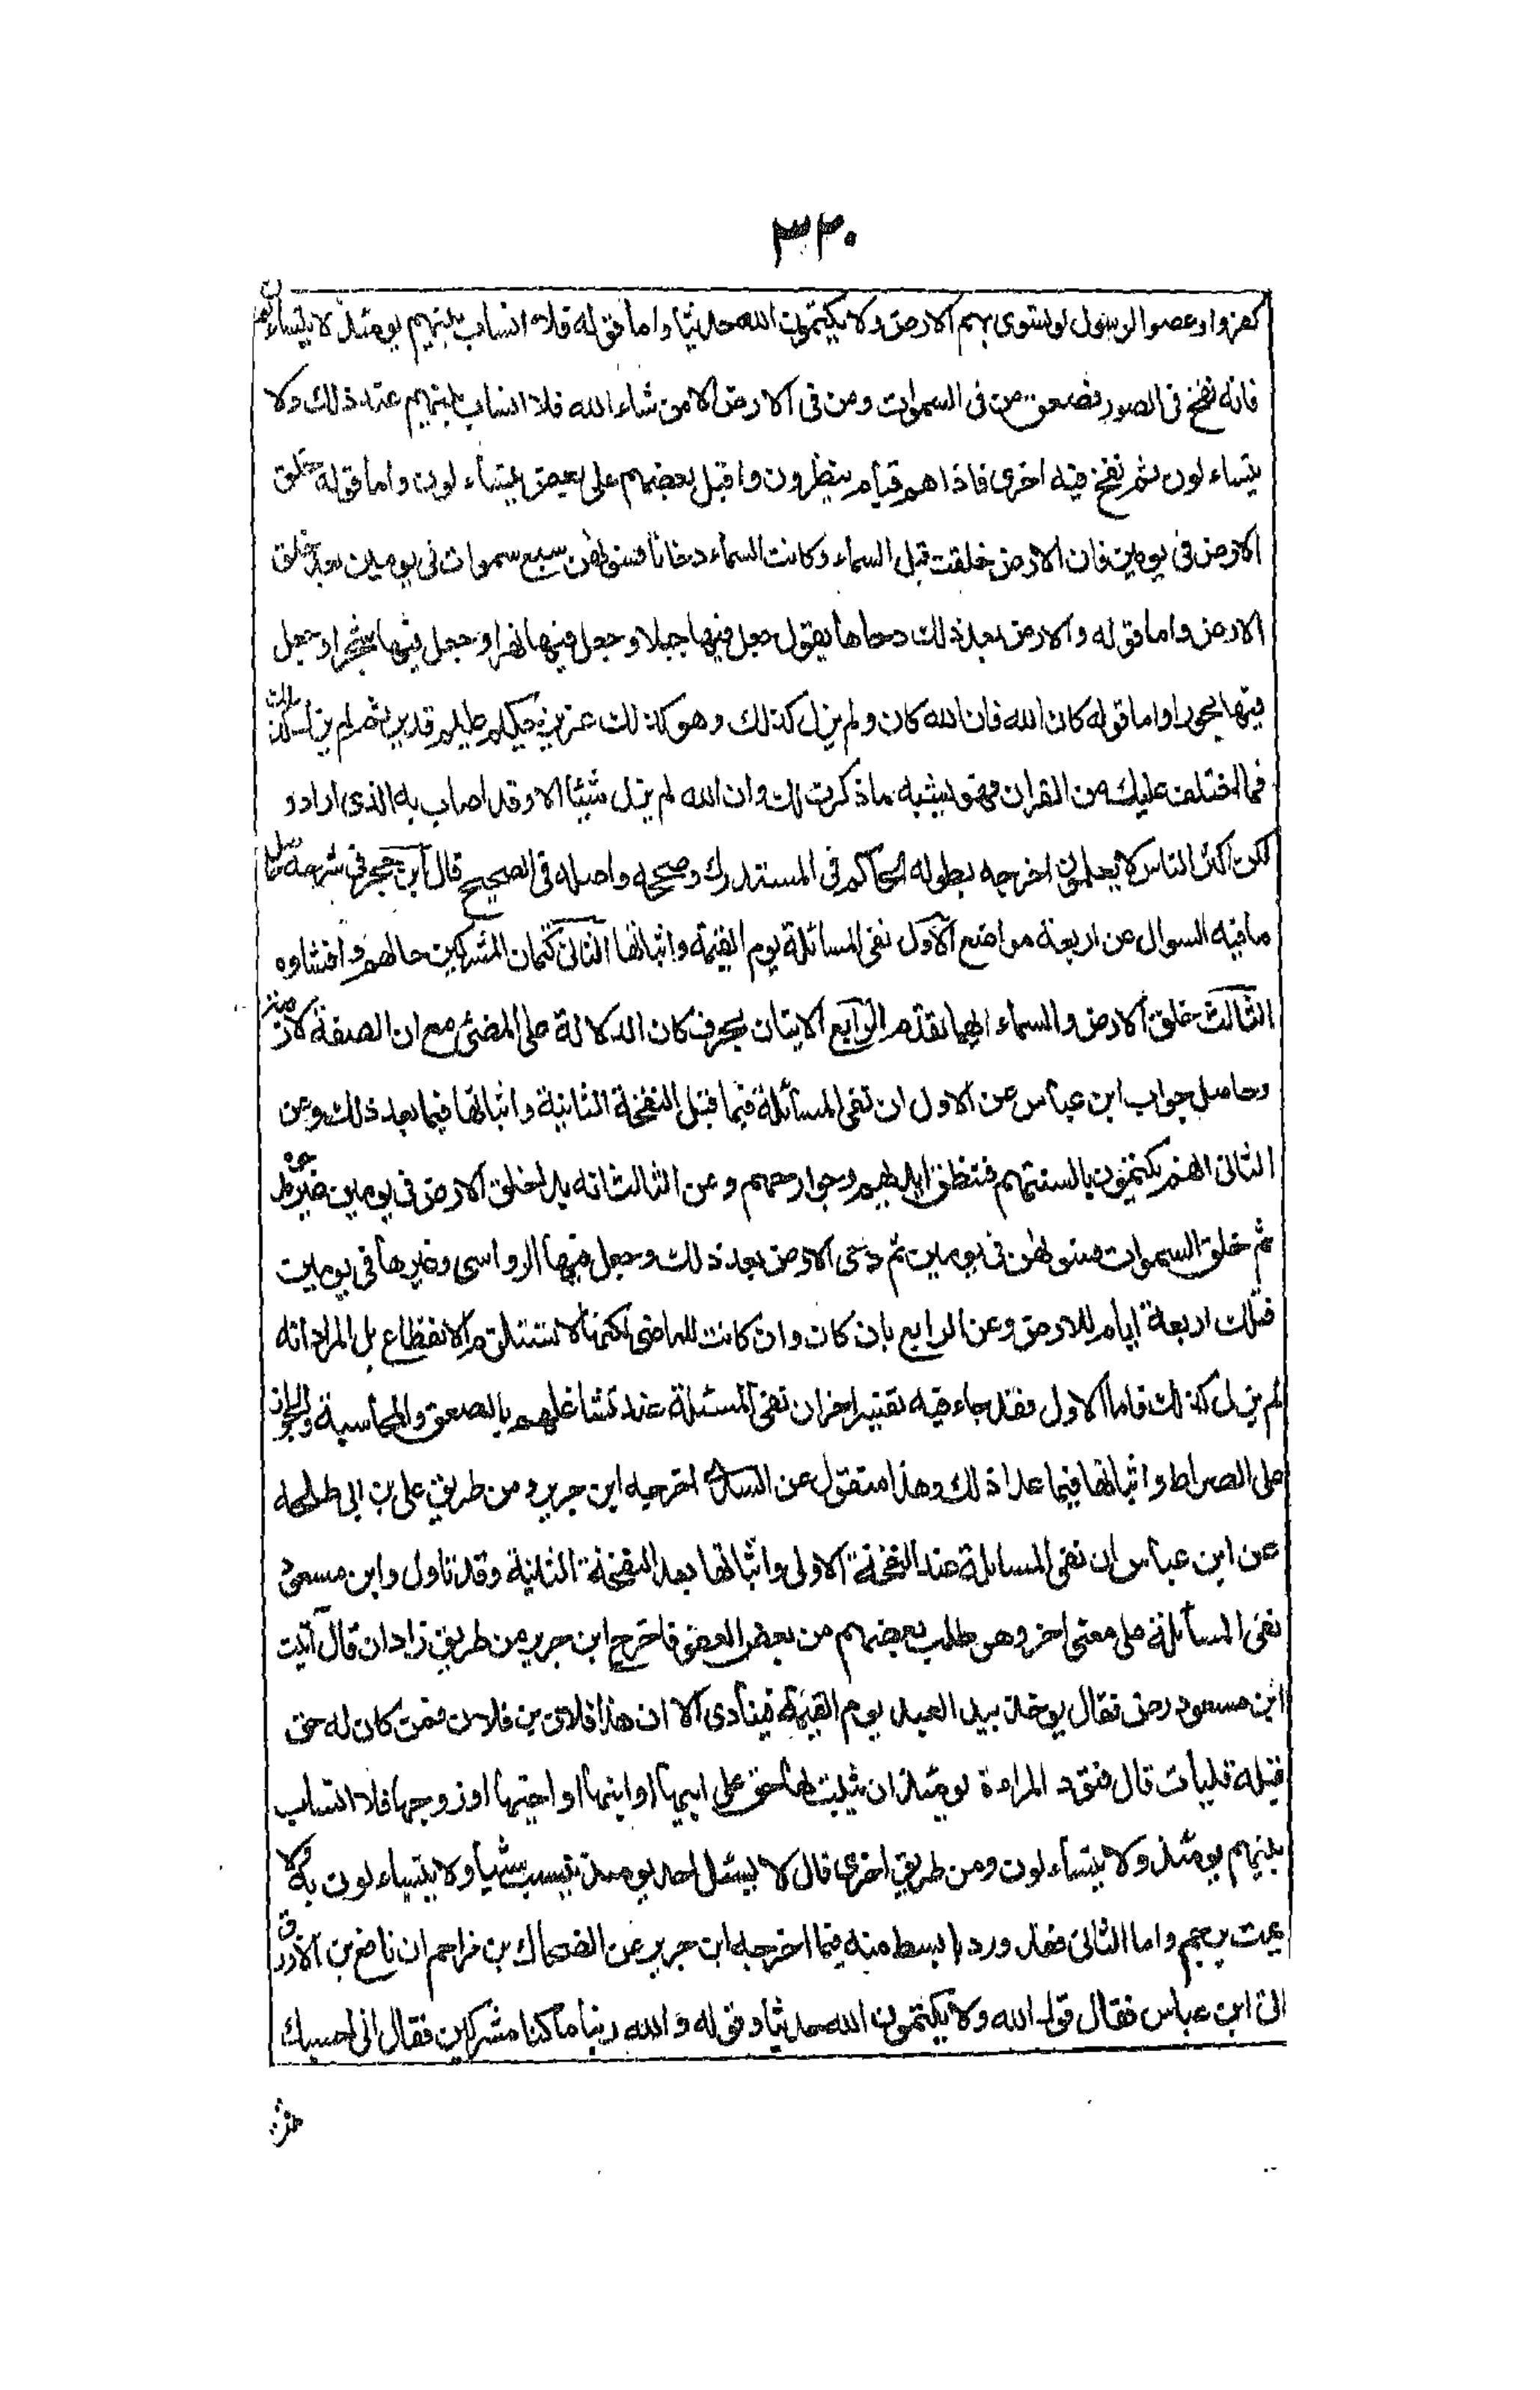 ٣٢٠
كفروا وعصوا الرسول لو تسوى بهم الارض ولا يكتمون الله حديثا واما قوله فلا انساب بينهم يومئذ لا يتساءلون
فانه نفخ فى الصور فصعق من فى السموات ومن فى الارض الا من شاء الله فلا انساب بينهم عند ذلك ولا
يتساءلون ثم نفخ فيه اخرى فاذا هم قيام ينظرون واقبل بعضهم على بعض يتساءلون واما قوله خلق
الارض فى يومين فان الارض خلقت قبل السماء وكانت السماء دخانا فسوٰهن سبع سموات فى يومين بعد خلق
الارض واما قوله والارض بعد ذلك دحاها يقول جعل فيها جبلا وجعل فيها نهرا وجعل فيها شجرا وجعل
فيها بحورا واما قوله كان الله فان الله كان ولم يزل كذلك وهو كذلك عزيز حكيم عليم قدير ثم لم يزل كذلك
فما اختلف عليك من القران فهو يشبه ما ذكرت لك وان الله لم يزل شيئا الا وقد اصاب به الذى اراد و
لكن اكثر الناس لا يعلمون اخرجه بطوله الحاكم فى المستدرك وصححه واصله فى الصحيح قال ابن حجر فى شرحه حاصل
ما فيه السوال عن اربعة مواضع الاول نفى المسائلة يوم القيمة واثباتها الثانى كتمان المشركين حالهم وافشاوه
الثالث خلق الارض والسماء ايهما تقدم الرابع الاتيان بحرف كان الدلالة على المضى مع ان الصفة لازمة
وحاصل جواب ابن عباس عن الاول ان نفى المسائلة فيما قبل النفخة الثانية واثباتها فيما بعد ذلك وعن
الثانى انهم يكتمون بالسنتهم فتنطق ايديهم وجوارحهم وعن الثالث انه بدا خلق الارض فى يومين غير مدحوة
ثم خلق السموات فسوٰهن فى يومين ثم دحى الارض بعد ذلك وجعل فيها الرواسى وغيرها فى يومين
فتلك اربعة ايام للارض وعن الرابع بان كان وان كانت للماضى لكنها لا تستلزم الانقطاع بل المراد انه
لم يزل كذلك فاما الاول فقد جاء فيه تفسير اخر ان نفى المسئلة عند تشاغلهم بالصعق والمحاسبة والجواز
على الصراط واثباتها فيما عدا ذلك وهذا منقول عن السدى اخرجه ابن جرير ومن طريق على بن ابى طلحه
عن ابن عباس ان نفى المسايلة عند النفخة الاولى واثباتها بعد النفخة الثانية وقد تاول وابن مسعود
نفى المسأئلة على معنى اخر وهو طلب بعضهم من بعض العفو فاخرج ابن جرير من طريق زاذان قال اتيت
ابن مسعود رض فقال يوخذ بيد العبد يوم القيمة فينادى الا ان هذا فلان بن فلان فمن كان له حق
قبله فليات قال فتود المراءة يومئذ ان يثبت لها حق على ابيها او ابنها او اخيها او زوجها فلا انساب
بينهم يومئذ ولا يتساءلون ومن طريق اخرى قال لا يسئل احد يومئذ بنسب شيأ ولا يتساءلون به ولا
يمت برحم واما الثانى فقد ورد بابسط منه فيما اخرجه ابن جرير عن الضحاك بن مزاحم ان نافع بن الازرق
اتى ابن عباس فقال قول الله ولا يكتمون الله حديثا وقوله والله ربنا ما كنا مشركين فقال انى احسبك